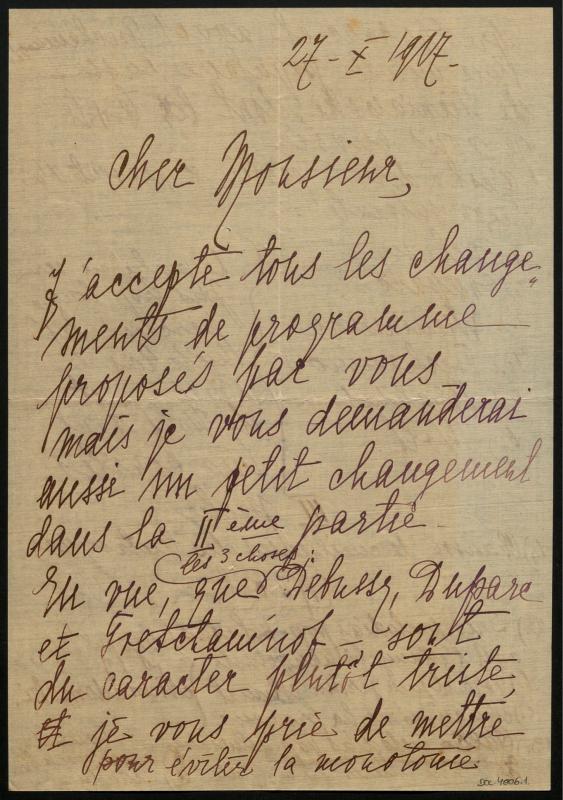 27 - X 1917.-
Cher Monsieur,
J'accepte tous les change„
ments de programme
proposés par vous
mais je vous demanderai
aussi un petit changement
dans la II ème partie.
les 3 choses:
En vue, que Debussy, Duparc
et Gretschaninof – sont
du caracter plutôt triste
je vous prie de mettre
pour éviter la monotonie
DOC 4006.1.